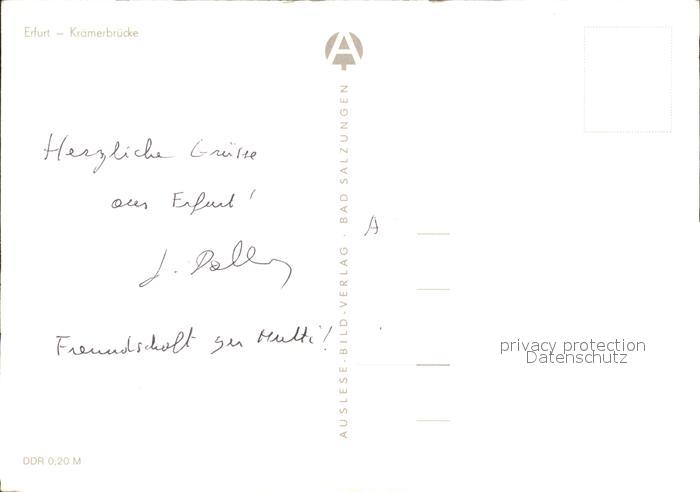 Erfurt – Krämerbrücke
A
Herzliche Grüsse
aus Erfurt!
J.
Freundschaft zu Mutti!
DDR 0,20 M
AUSLESE-BILD-VERLAG · BAD SALZUNGEN
A
privacy protection
Datenschutz